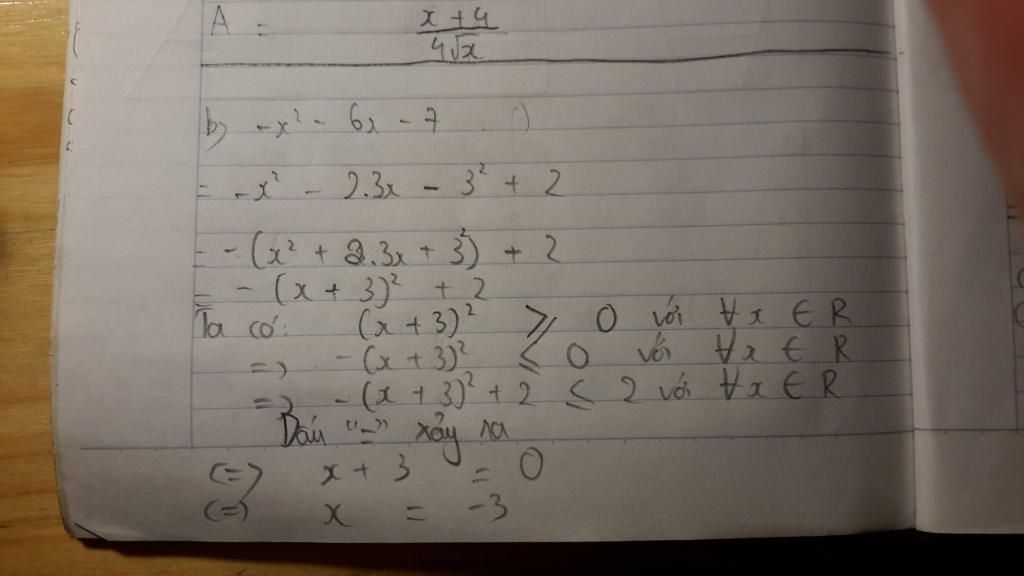 A = x + 4 / 4√x
b) -x² - 6x - 7
= -x² - 2.3x - 3² + 2
= -(x² + 2.3x + 3²) + 2
= -(x + 3)² + 2
Ta có: (x + 3)² ⩾ 0 với ∀x ∈ R
=> -(x + 3)² ≤ 0 với ∀x ∈ R
=> -(x + 3)² + 2 ≤ 2 với ∀x ∈ R
Dấu "=" xảy ra
<=> x + 3 = 0
<=> x = -3